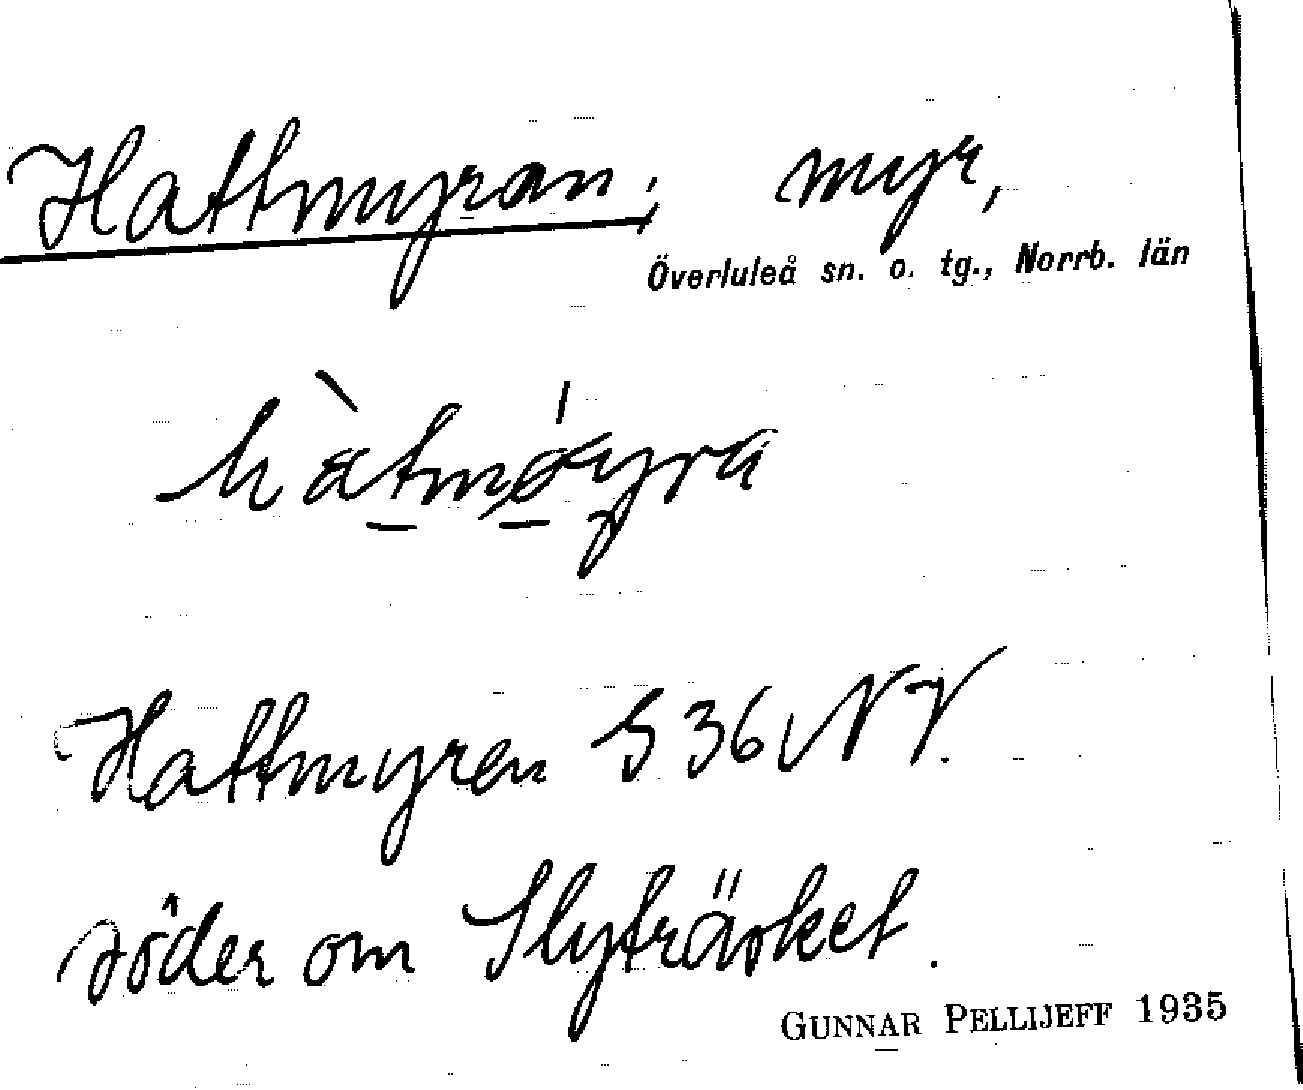 Hattmyran; myr,
Överluleå sn. o. tg., Norrb. län
hàtmǿyra
Hattmyren S 36 NV.
söder om Slyträsket.
GUNNAR PELLIJEFF 1935